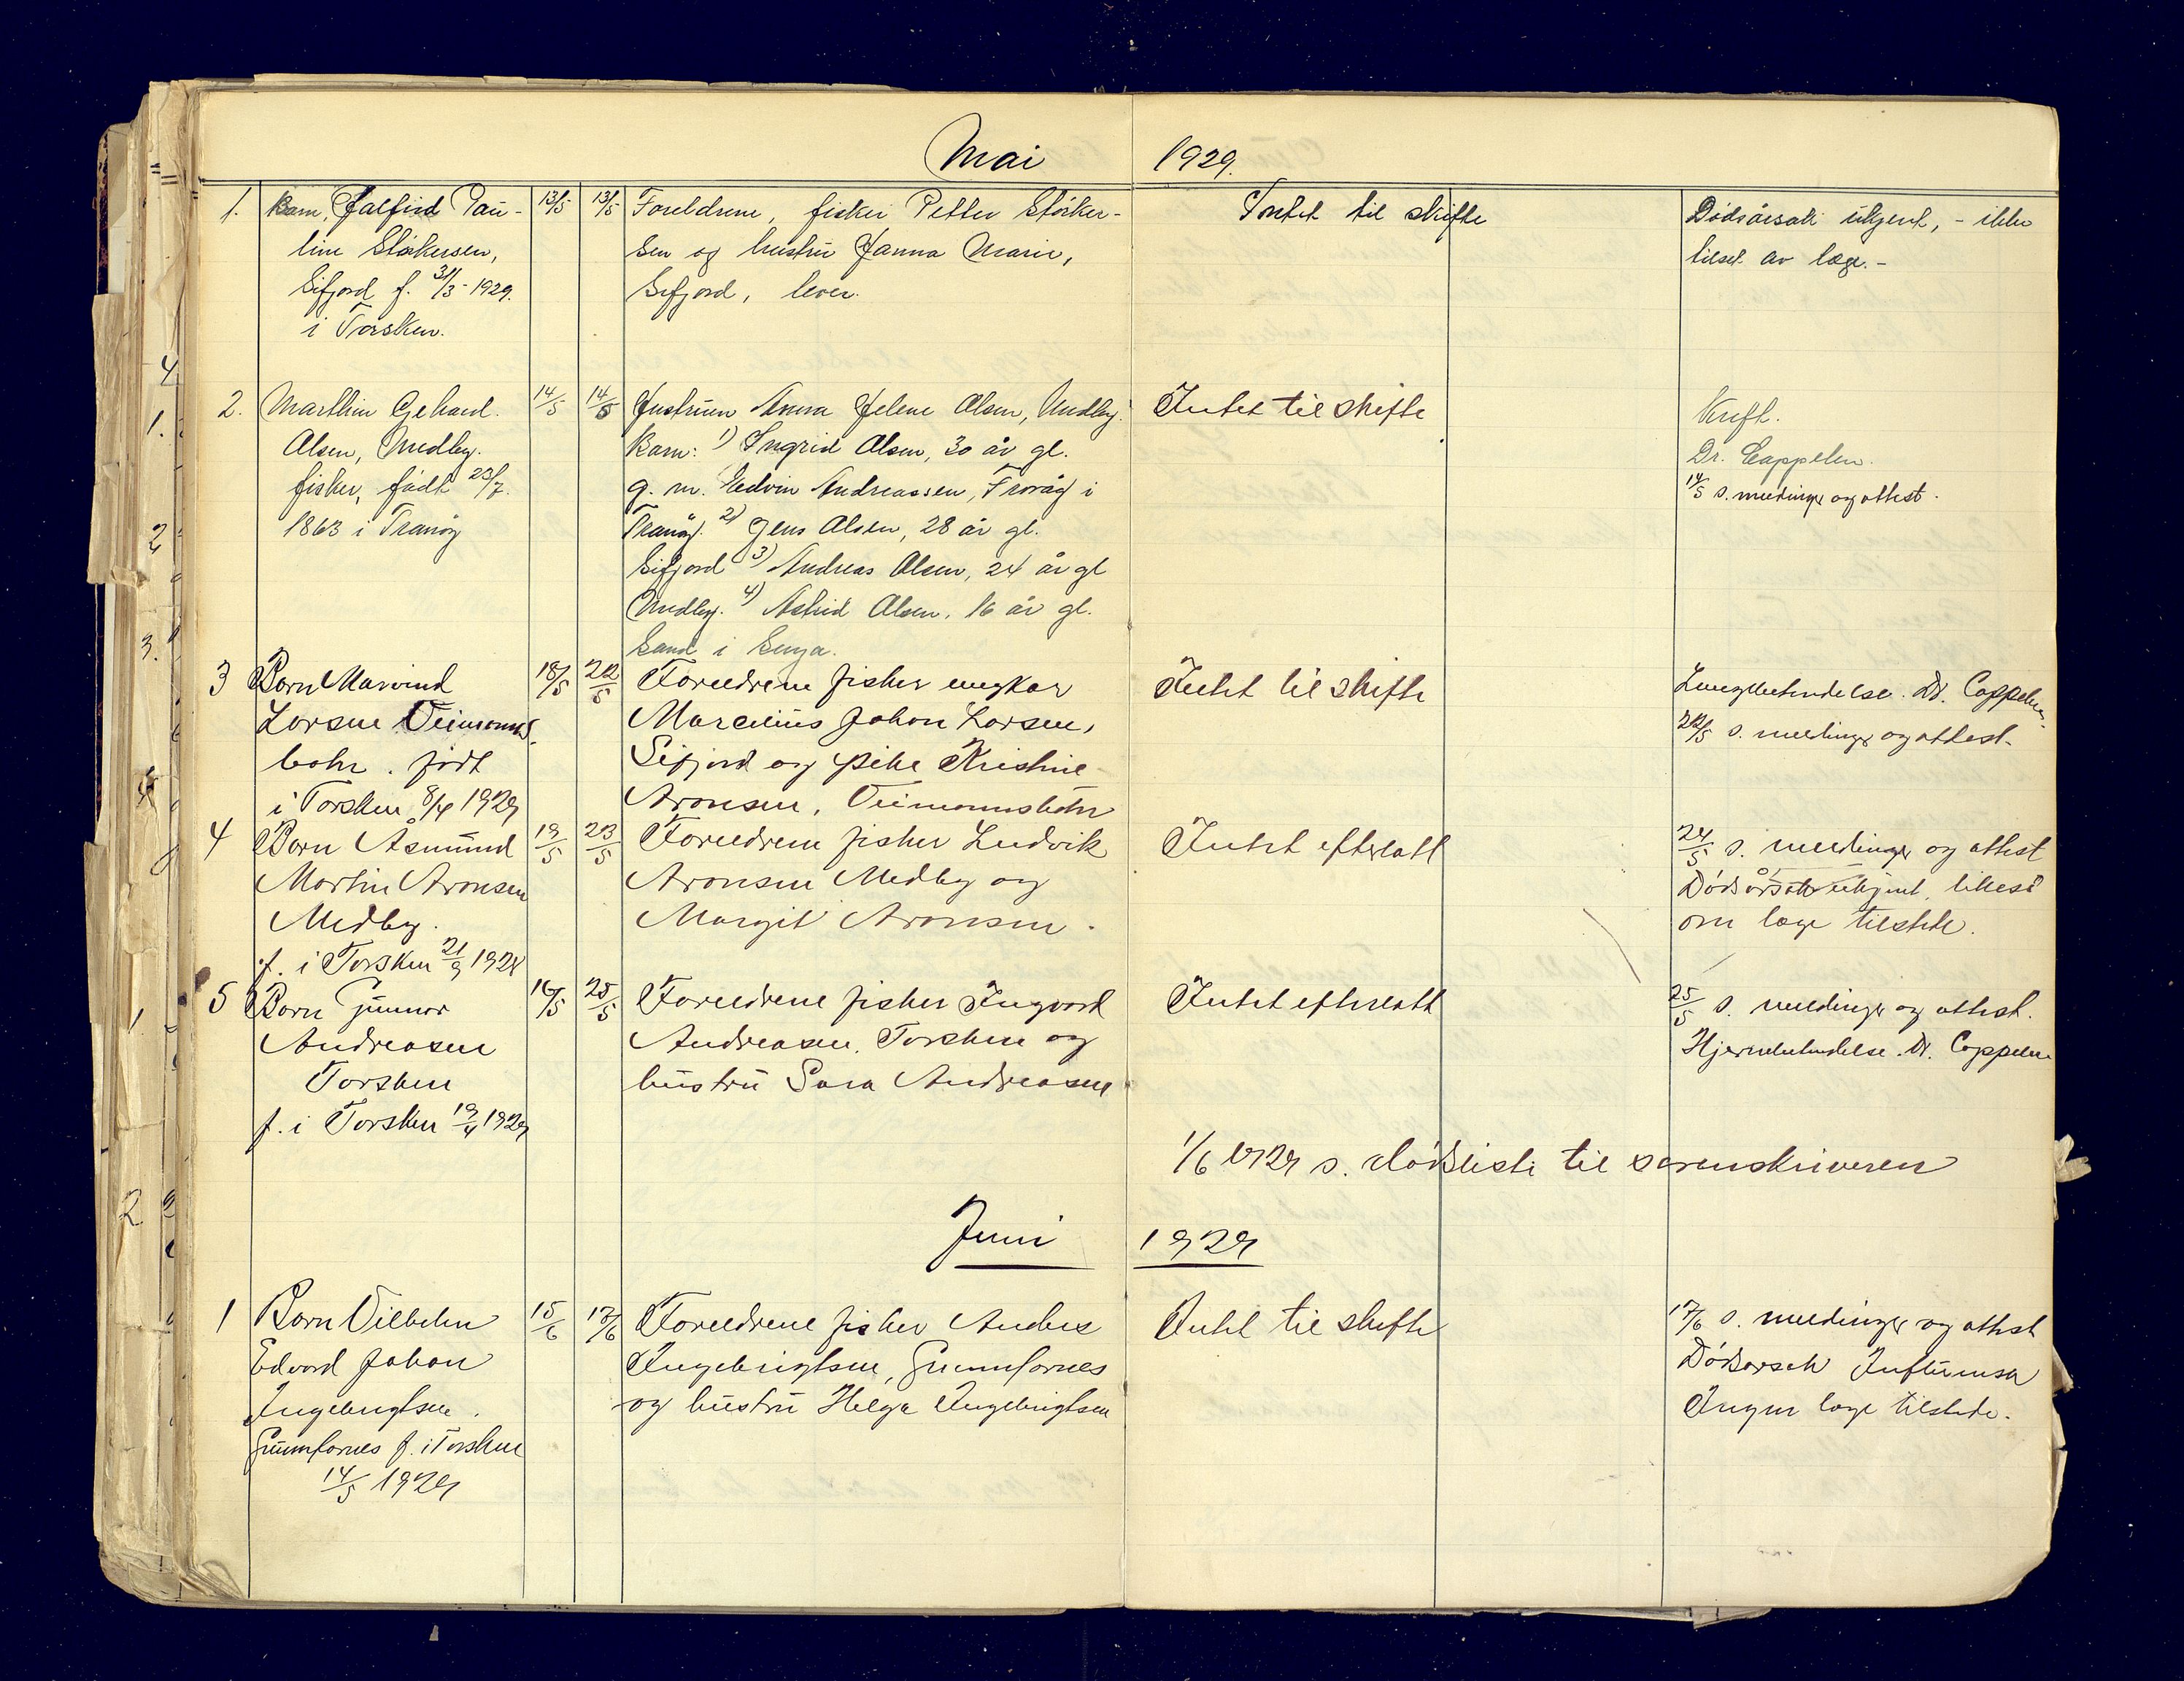 Mai 1929.
1. Barn, Halfrid Pau- 13/5 13/5 Foreldrene, fisker Petter Stärker- Intet til skifte Dødsårsak ukjent, - ikke
line Stärkersen, sen og hustru Hanna Marie, tilset av læge.-
Sifjord f. 31/3-1929. Sifjord, lever.
i Torsken.
2. Marthin Gehard. 14/5 14/5 Hustruen Anna Helene Olsen, Medby. Intet til skifte Kreft.
Olsen, Medby. Barn: 1) Ingrid Olsen, 30 år gl. Dr. Cappelen.
fisker, født 23/7. g. m. Edvin Andreassen, Frovåg i 14/5 s. meldinger og attest.
1863 i Tranöy Tranöy. 2) Jens Olsen, 28 år gl.
Sifjord 3) Andreas Olsen, 24 år gl
Medby. 4) Astrid Olsen, 16 år gl.
Sand i Senja.
3 Barn Marvind 18/5 22/5 Foreldrene fisker ungkar Intet til skifte Lungebetendelse. Dr. Cappelen.
Larsen Veimanns- Marcelius Johan Larsen, 22/5 s. meldinger og attest.
botn. født Sifjord og pike Kristine
i Torsken 8/4 1929 Aronsen, Veimannsbotn
4 Barn Åsmund 19/5 23/5 Foreldrene fisker Ludvik Intet efterlatt 24/5 s. meldinger og attest
Martin Aronsen Aronsen Medby og Dødsårsak ukjent, likeså
Medby. Margit Aronsen. om læge tilstede.
f. i Torsken 21/9 1928
5 Barn Gunnar 16/5 25/5 Foreldrene fisker Ingvard Intet efterlatt 25/5 s. meldinger og attest.
Andreasen Andreasen, Torsken og Hjernebetendelse. Dr. Cappelen
Torsken hustru Sara Andreasen
f. i Torsken 19/4 1929
1/6 1929 s. dødsliste til sorenskriveren
Juni 1929
1 Barn Vilhelm 15/6 17/6 Foreldrene fisker Anders Intet til skifte 17/6 s. meldinger og attest
Edvard Johan Ingebrigtsen, Grunnfarnes Dødsarsak Influensa
Ingebrigtsen. og hustru Helga Ingebrigtsen Ingen læge tilstede.
Grunnfarnes f. i Torsken
14/5 1929